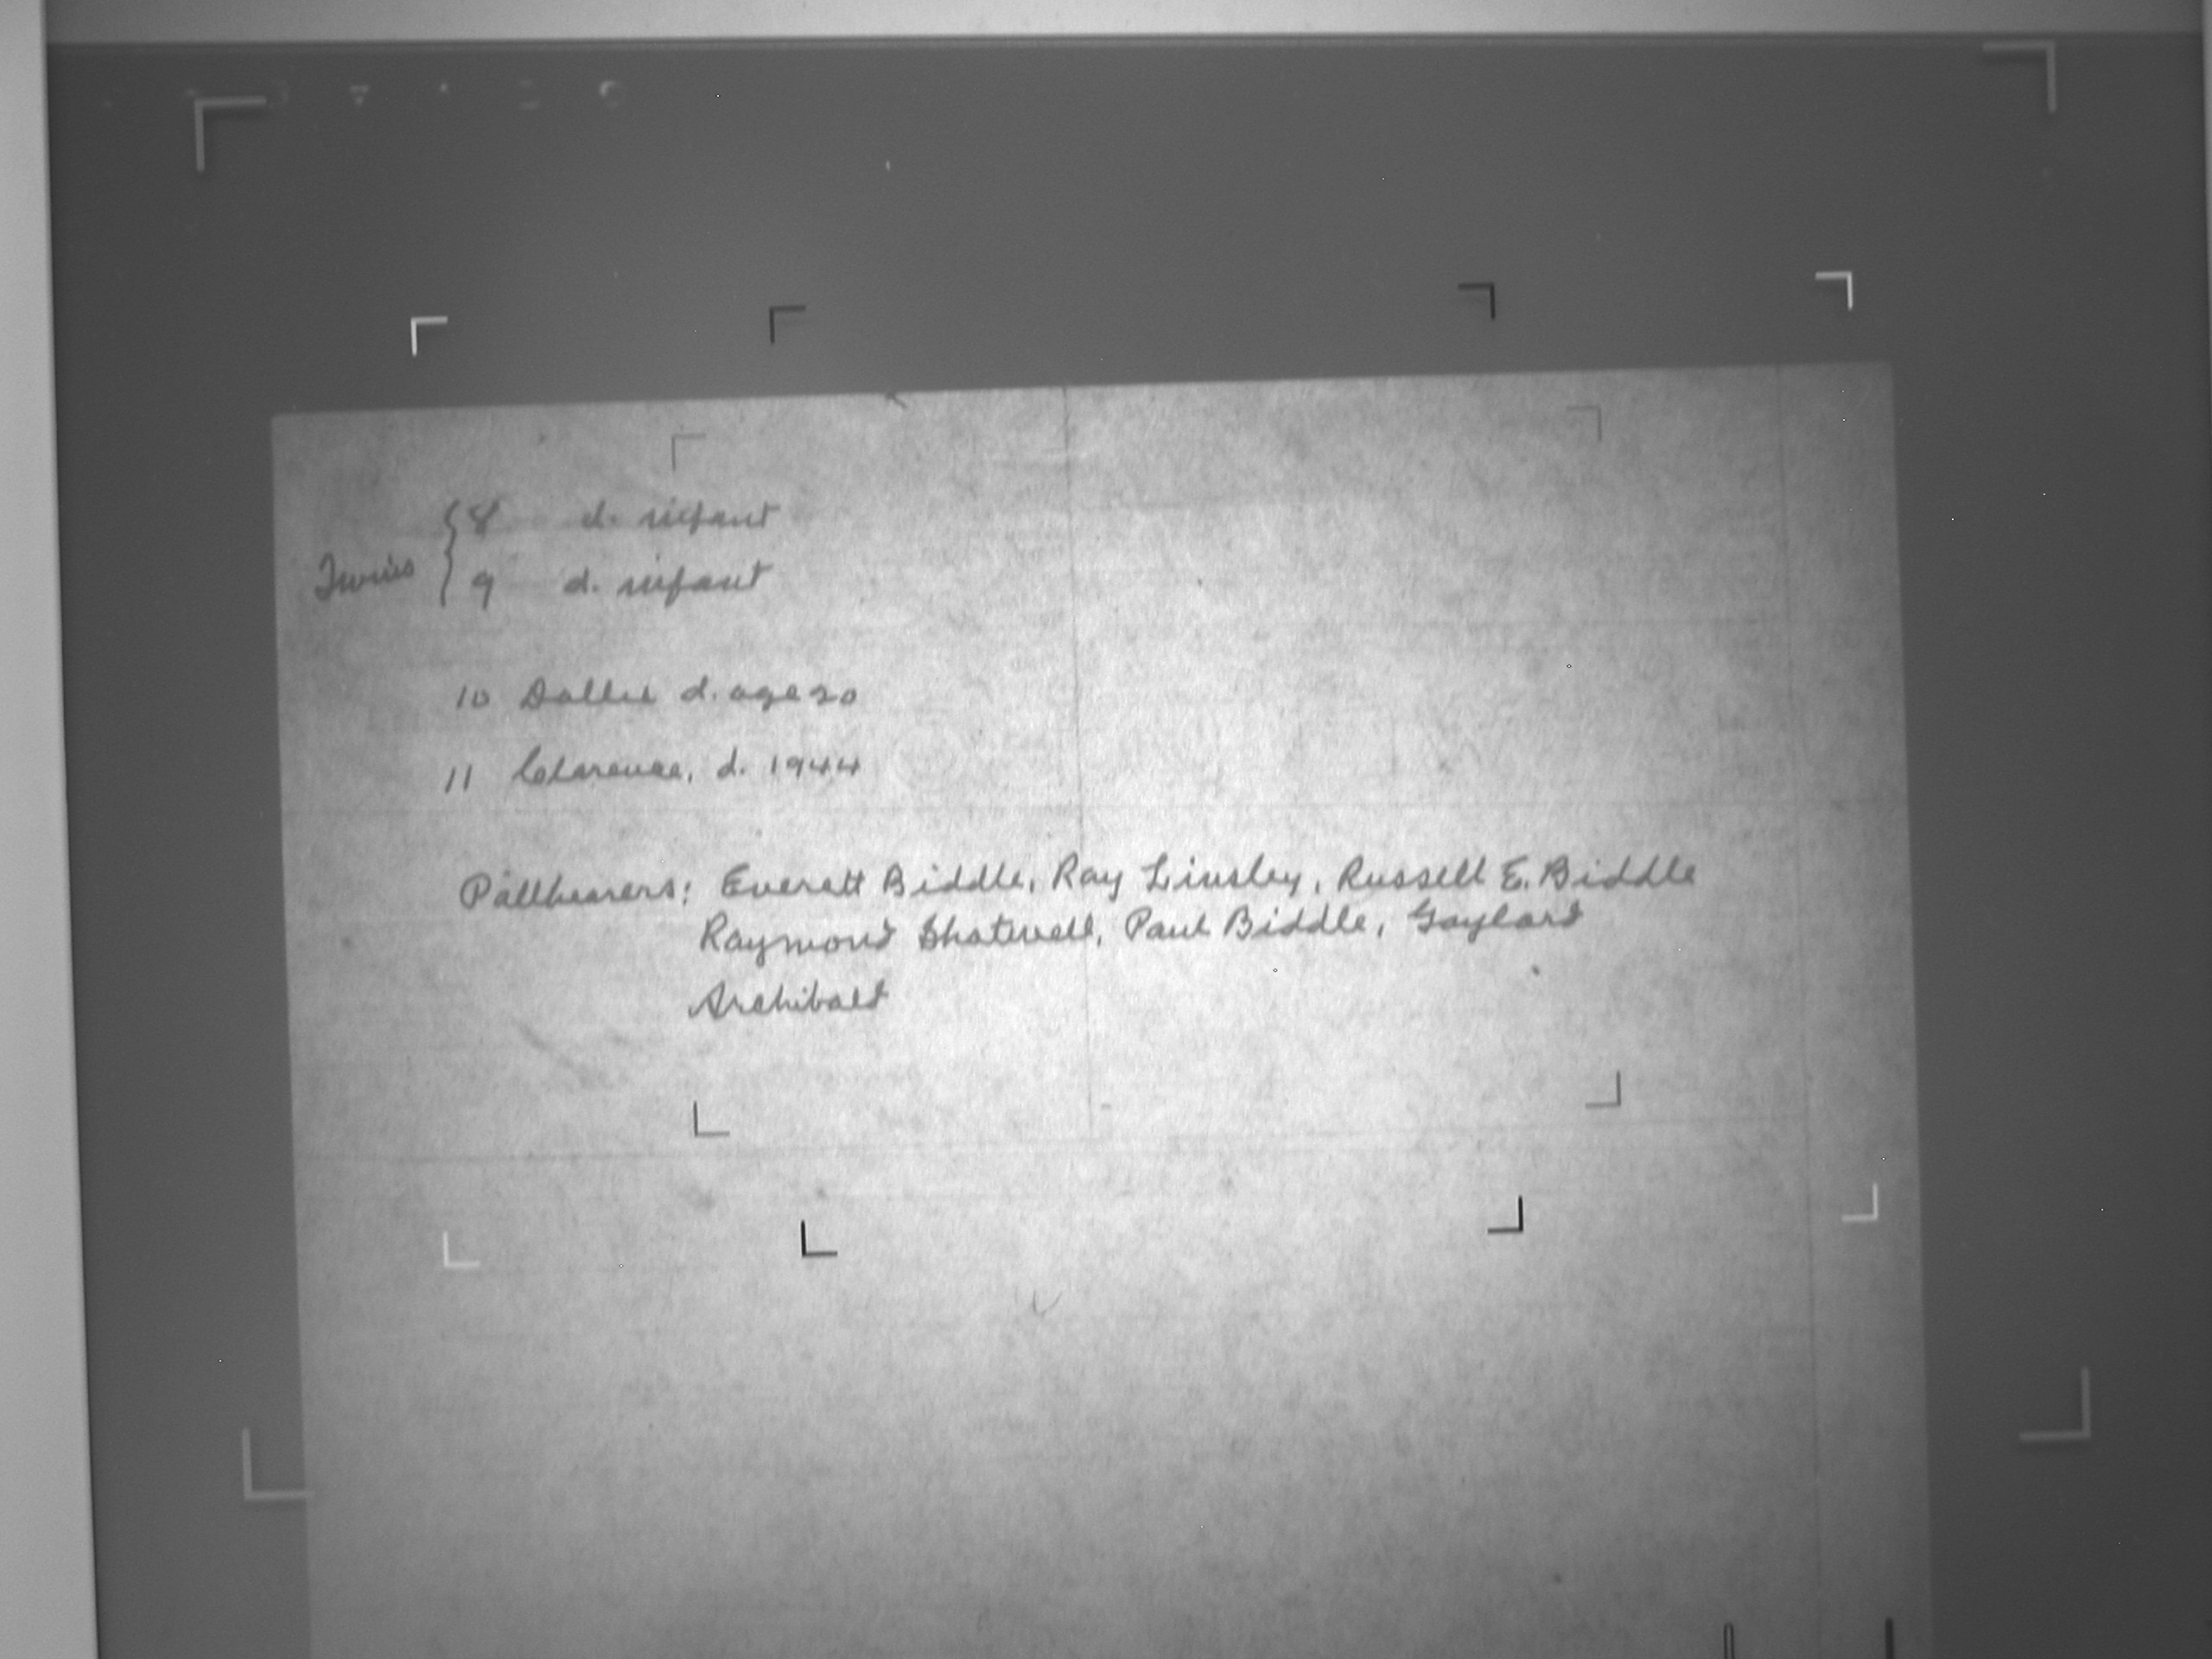 Twins { 8 d. infant
9 d. infant
10 Dollie d. age 20
11 Clarence, d. 1944
Pallbearers: Everett Biddle, Ray Linsley, Russell E. Biddle
Raymond Shatwell, Paul Biddle, Gaylard
Archibald